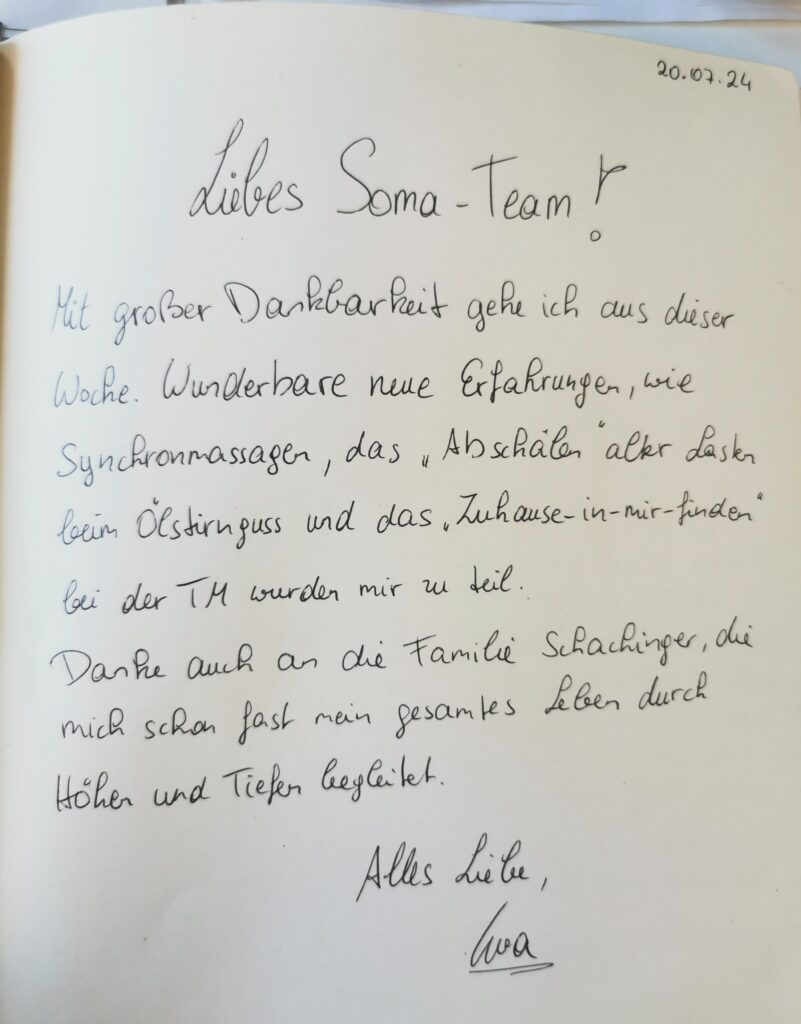 20.07.24
Liebes Soma-Team!
Mit großer Dankbarkeit gehe ich aus dieser
Woche. Wunderbare neue Erfahrungen, wie
Synchronmassagen, das „Abschälen“ alter Lasten
beim Ölstirnguss und das „Zuhause-in-mir-finden“
bei der TM wurden mir zu teil.
Danke auch an die Familie Schachinger, die
mich schon fast mein gesamtes Leben durch
Höhen und Tiefen begleitet.
Alles Liebe,